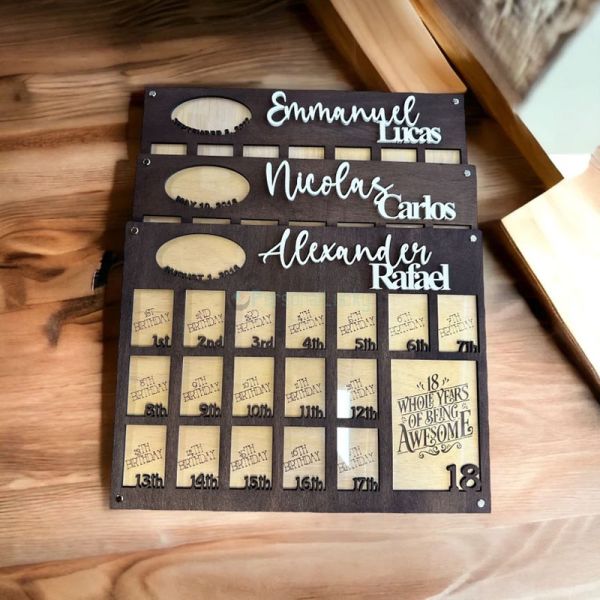 Emmanuel
Lucas
Nicolas
Carlos
MAY 10, 2018
Alexander
Rafael
1ST BIRTHDAY
2ND BIRTHDAY
3RD BIRTHDAY
4TH BIRTHDAY
5TH BIRTHDAY
6TH BIRTHDAY
7TH BIRTHDAY
1st 2nd 3rd 4th 5th 6th 7th
8TH BIRTHDAY
9TH BIRTHDAY
10TH BIRTHDAY
11TH BIRTHDAY
12TH BIRTHDAY
8th 9th 10th 11th 12th
13TH BIRTHDAY
14TH BIRTHDAY
15TH BIRTHDAY
16TH BIRTHDAY
17TH BIRTHDAY
13th 14th 15th 16th 17th
18
WHOLE YEARS
OF BEING
AWESOME
18